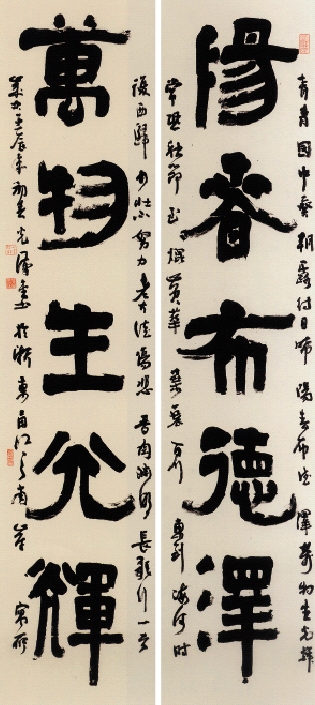 青青園中葵朝露待日晞陽春布德澤萬物生光輝
陽春布德澤
常恐秋節至焜黃華葉衰百川東到海何時
復西歸少壯不努力老大徒傷悲長歌行一首
萬物生光輝
歲次壬辰年初春於浙東甬江之南岸